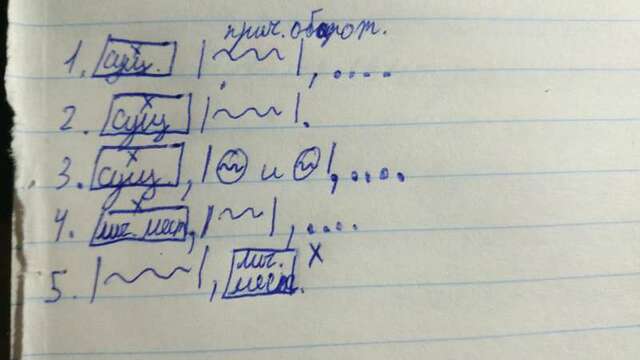 прич. оборот.
1. сущ. |~~~|, ....
2. сущ |~~~|.
3. сущ, |~ и ~|, ....
4. лич. мест, |~~|, ....
5. |~~~|, лич. мест. x